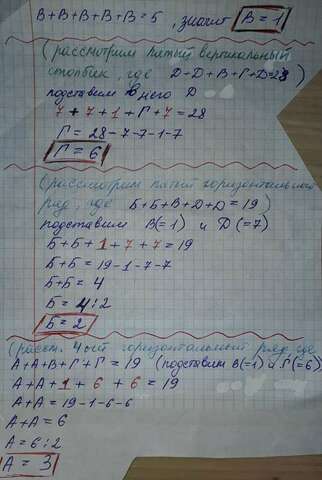 В+В+В+В+В=5 , значит В = 1
(рассмотрим пятый вертикальный
столбик, где Д+Д+В+Г+Д=28)
подставим в него Д
7 + 7 + 1 + Г + 7 = 28
Г = 28-7-7-1-7
Г = 6
(рассмотрим пятый горизонтальный
ряд, где Б+Б+В+Д+Д = 19)
подставим В(=1) и Д(=7)
Б+Б+1+7+7=19
Б+Б=19-1-7-7
Б+Б= 4
Б= 4:2
Б=2
(рассм. 4ый горизонтальный ряд, где
А+А+В+Г+Г = 19 (подставим В(=1) и Г(=6)
А+А+1+6+6=19
А+А=19-1-6-6
А+А = 6
А=6:2
А = 3